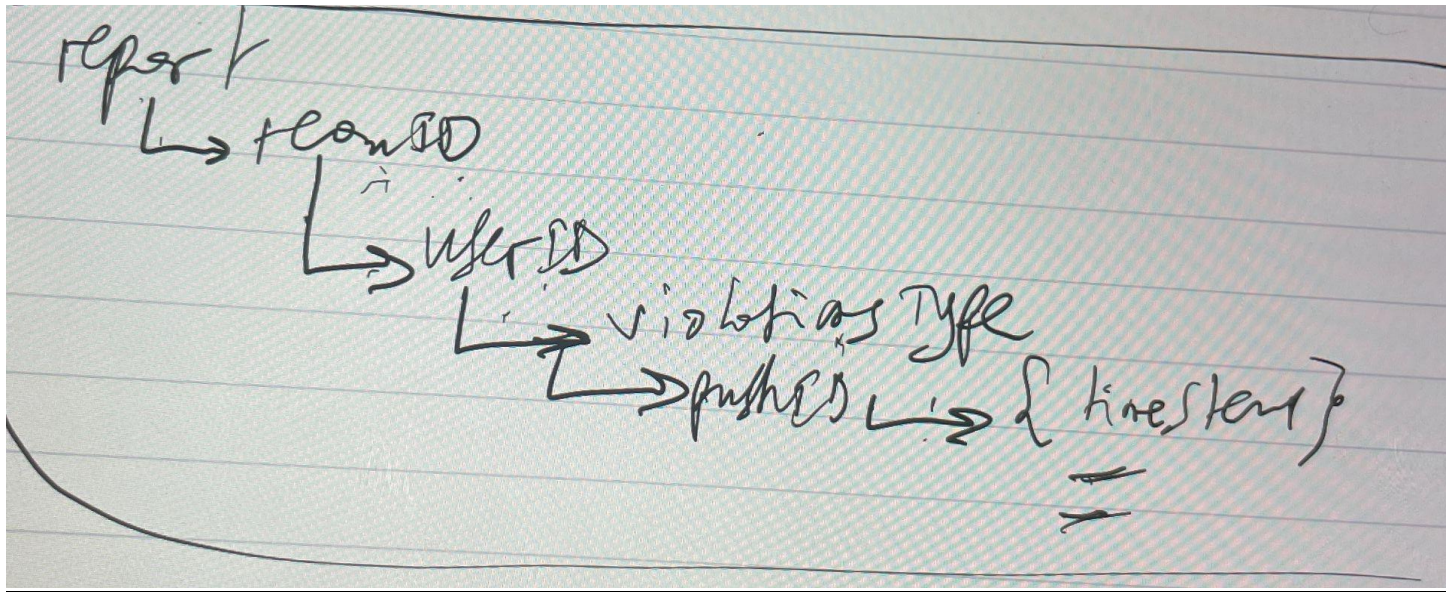 report
↳ teamID
↳ userID
↳ violations Type
↳ pushID ↳ { timestamp }